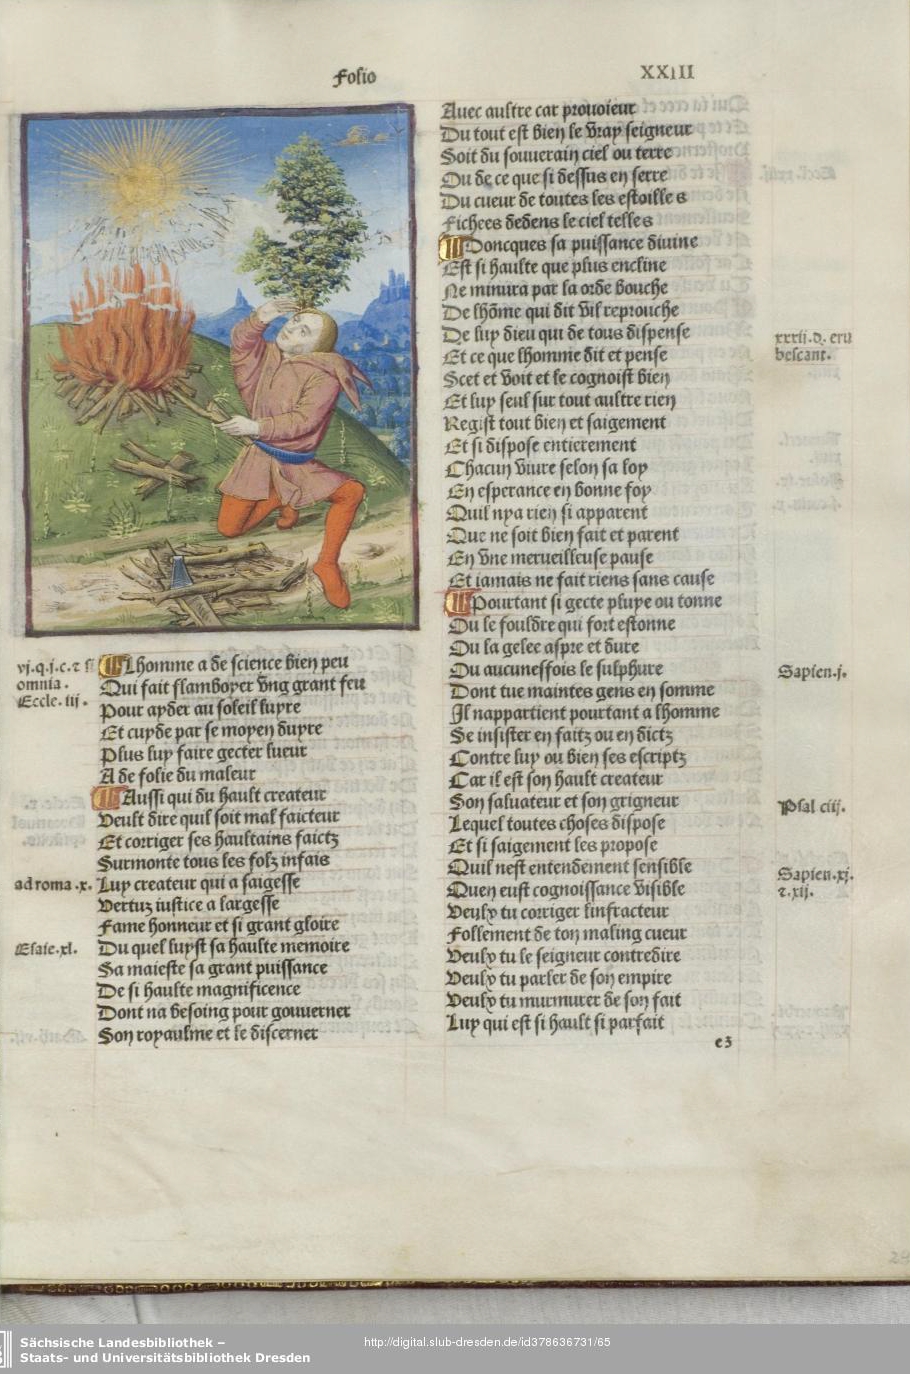 Folio
XXIII
vj.q.j.c.τ si
omnia.
Eccle.iij.
Lhomme a de science bien peu
Qui fait flamboyer vng grant feu
Pour ayder au soleil luyre
Et cuyde par se moyen duyre
Plus luy faire gecter lueur
A de folie du maleur
Aussi qui du hault createur
Veult dire quil soit mal faicteur
Et corriger ses haultains faictz
Surmonte tous les folz infais
ad roma.x.
Luy createur qui a saigesse
Vertuz iustice a largesse
Fame honneur et si grant gloire
Esaie.xl.
Du quel luyst sa haulte memoire
Sa maieste sa grant puissance
De si haulte magnificence
Dont na besoing pour gouuerner
Son royaulme et le discerner
Auec aultre car prouoieur
Du tout est bien le vray seigneur
Soit du souuerain ciel ou terre
Ou de ce que si dessus en serre
Du cueur de toutes les estoilles
Fichees dedens le ciel telles
Doncques sa puissance diuine
Est si haulte que plus encline
Ne minura par la orde bouche
De lhõme qui dit vil reprouche
De luy dieu qui de tous dispense
xxxii.d. eru
bescant.
Et ce que lhomme dit et pense
Scet et voit et le cognoist bien
Et luy seul sur tout aultre rien
Regist tout bien et saigement
Et si dispose entierement
Chacun viure selon sa loy
En esperance en bonne foy
Quil nya rien si apparent
Que ne soit bien fait et parent
En vne merueilleuse pause
Et iamais ne fait riens sans cause
Pourtant si gecte pluye ou tonne
Ou le fouldre qui fort estonne
Ou la gelee aspre et dure
Ou aucunessois le sulphure
Sapien.j.
Dont tue maintes gens en somme
Il nappartient pourtant a lhomme
Se insister en faitz ou en dictz
Contre luy ou bien ses escriptz
Car il est son hault createur
Son saluateur et son grigneur
Psal ciij.
Lequel toutes choses dispose
Et si saigement les propose
Quil nest entendement sensible
Sapien.xj.
τ.xij.
Quen eust cognoissance visible
Veulx tu corriger linfracteur
Follement de ton maling cueur
Veulx tu le seigneur contredire
Veulx tu parler de son empire
Veulx tu murmurer de son fait
Luy qui est si hault si parfait
e3
Sächsische Landesbibliothek –
Staats- und Universitätsbibliothek Dresden
http://digital.slub-dresden.de/id378636731/65